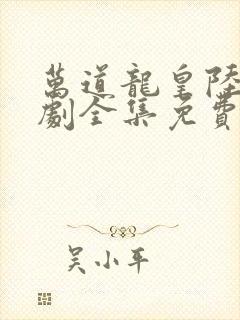 萬道龍皇陸
劇全集免費
吳小平